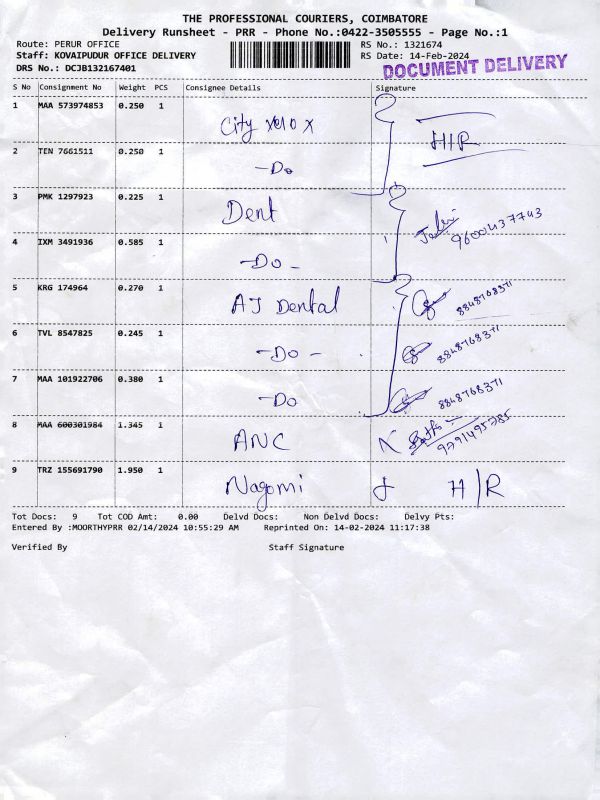 THE PROFESSIONAL COURIERS, COIMBATORE
Delivery Runsheet - PRR - Phone No.:0422-3505555 - Page No.:1
Route: PERUR OFFICE RS No.: 1321674
Staff: KOVAIPUDUR OFFICE DELIVERY RS Date: 14-Feb-2024
DRS No.: DCJB132167401 DOCUMENT DELIVERY
S No Consignment No Weight PCS Consignee Details Signature
1 MAA 573974853 0.250 1 City xerox H/R
2 TEN 7661511 0.250 1 -Do
3 PMK 1297923 0.225 1 Dent 9600437743
4 IXM 3491936 0.585 1 -Do-
5 KRG 174964 0.270 1 AJ Dental 8848768371
6 TVL 8547825 0.245 1 -Do- 8848768371
7 MAA 101922706 0.380 1 -Do 8848768371
8 MAA 600301984 1.345 1 ANC 9791495785
9 TRZ 155691790 1.950 1 Nagomi H/R
Tot Docs: 9 Tot COD Amt: 0.00 Delvd Docs: Non Delvd Docs: Delvy Pts:
Entered By :MOORTHYPRR 02/14/2024 10:55:29 AM Reprinted On: 14-02-2024 11:17:38
Verified By Staff Signature